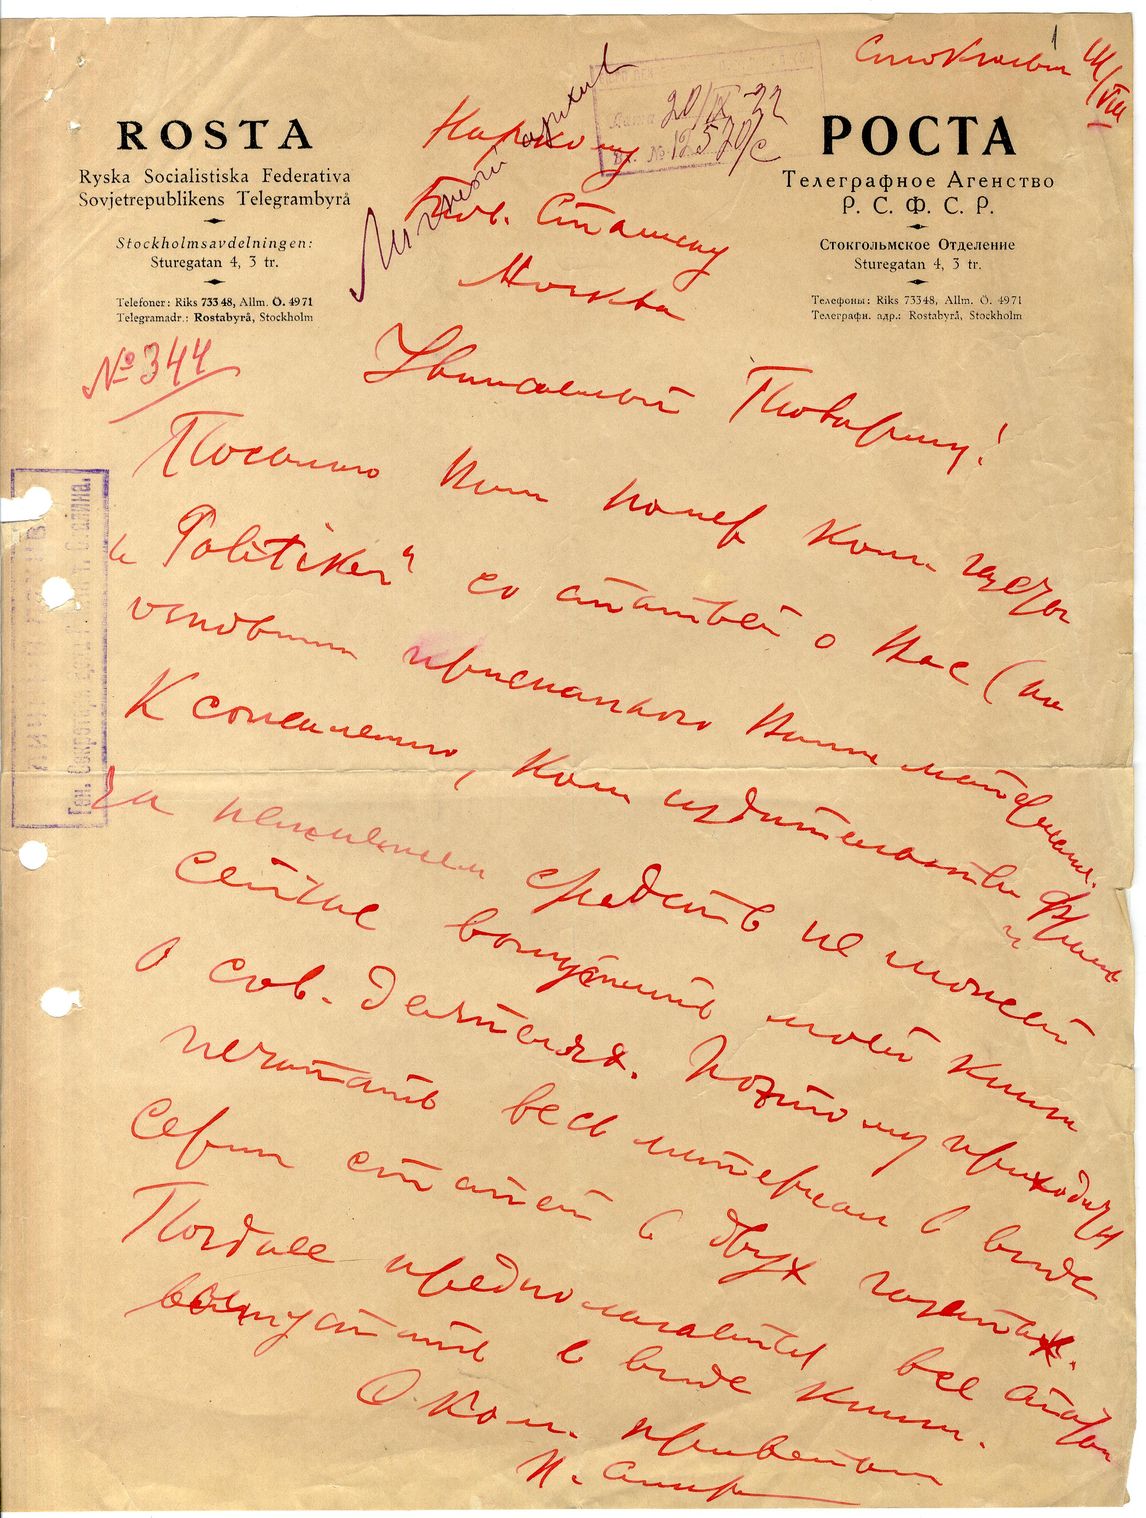 1
Стокгольм 14/VIII
ROSTA
Ryska Socialistiska Federativa
Sovjetrepublikens Telegrambyrå
Stockholmsavdelningen:
Sturegatan 4, 3 tr.
Telefoner: Riks 733 48, Allm. Ö. 49 71
Telegramadr.: Rostabyrå, Stockholm
РОСТА
Телеграфное Агенство
Р. С. Ф. С. Р.
Стокгольмское Отделение
Sturegatan 4, 3 tr.
Телефоны: Riks 733 48, Allm. Ö. 49 71
Телеграфн. адр.: Rostabyrå, Stockholm
Дата 20/IX-22
Вх. № 12520/с
Личный архив
Наркому
Тов. Сталину
Москва
№ 344
Уважаемый Товарищ!
Посылаю Вам номер Ком. газеты
„Politiken" со статьей о Вас (на
основании присланного Вами материала.
К сожалению, Ком издательство
за неимением средств не может
сейчас выпустить моей книги
о сов. деятелях. Поэтому приходится
печатать весь материал в виде
серии статей в двух газетах.
Позднее предполагается все статьи
выпустить в виде книги.
С Ком. приветом
ЛИЧНЫЙ АРХИВ
Ген. Секретаря т. Сталина.